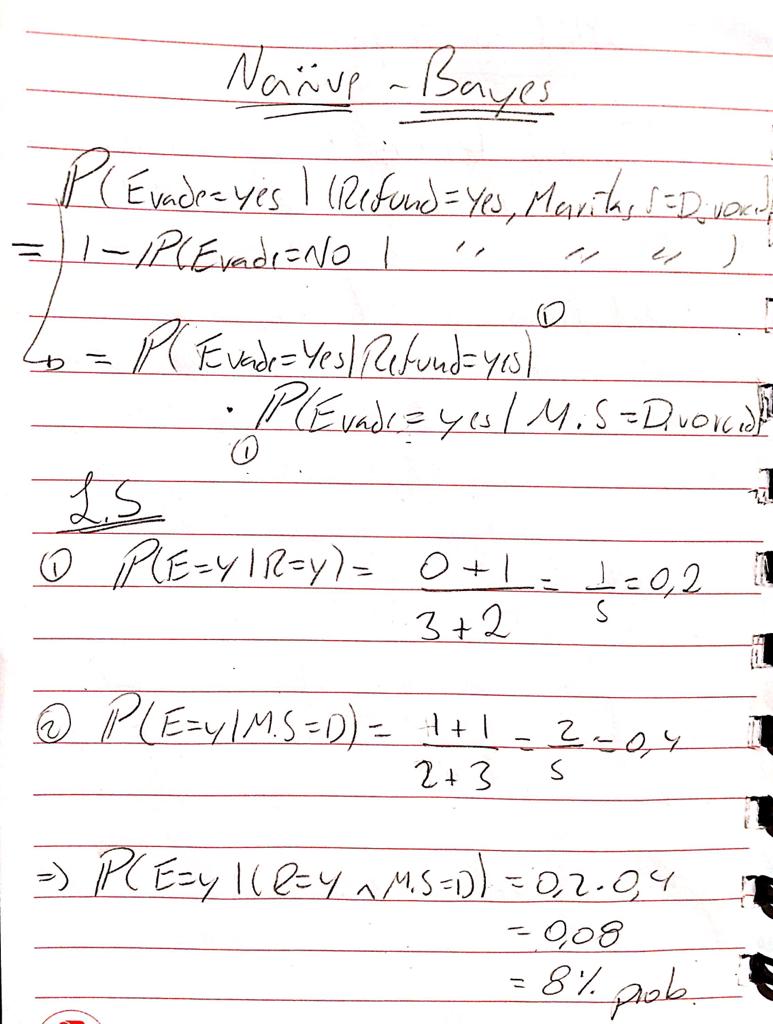 Naïve - Bayes
P(Evade=yes | (Refund=Yes, Marital S=Divorced)
= 1 - P(Evade=NO | " " " )
①
= P(Evade=Yes | Refund=yes)
· P(Evade=yes | M.S=Divorced)
①
L.S
① P(E=y | R=y) = 0+1 / 3+2 = 1/5 = 0,2
② P(E=y | M.S=D) = 1+1 / 2+3 = 2/5 = 0,4
=> P(E=y | (R=y ∧ M.S=D) = 0,2 . 0,4
= 0,08
= 8% prob.